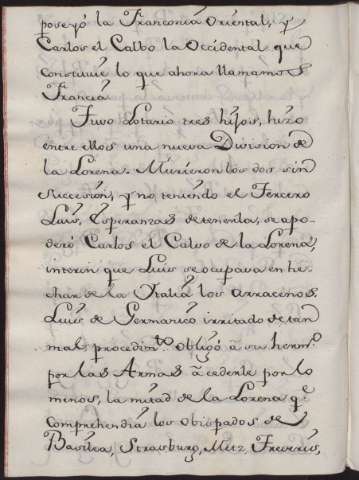 poseyó la Franconia Oriental, y
Carlos el Calbo la Occidental que
constituie lo que ahora llamamos
Francia.
Tuvo Lotario tres hijos, hizo
entre ellos una nueva Division de
la Lorena. Murieron los dos sin
succesión, y no teniendo el Tercero
Luis, Esperanzas de tenerla, se apo-
deró Carlos el Calvo de la Lorena,
interin que Luis se ocupava en he-
char de la Italia los Sarracenos.
Luis de Germanico irritado de tan
mal procedim.to obligó à su herm.o
por las Armas à cederle por lo
minos, la mitad de la Lorena q.e
comprehendia los Obispados de
Basilea, Strasburg, Metz, Treveris,